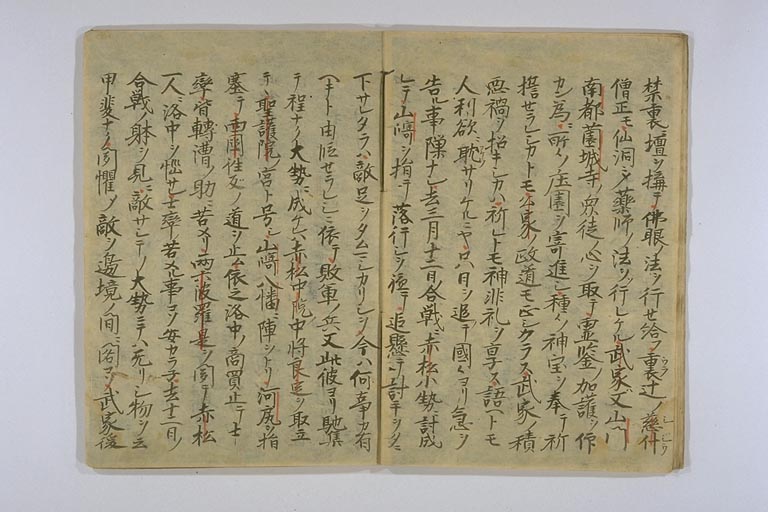 禁裏壇ヲ搆テ佛眼ノ法ヲ行セ給フ裏辻ノ慈什
僧正モ仙洞ニテ薬師ノ法ヲ行レケル武家又山門
南都薗城寺ノ衆徒ノ心ヲ取テ霊鑒ノ加護ヲ仰
カン為ニ所々ノ庄園ヲ寄進シ種々ノ神宝ヲ奉テ祈
セラレシカトモ公家ノ政道モ正シカラス武家ノ積
悪禍ヲ招キシカハ祈レトモ神非礼ヲ享ス語ヘトモ
人利欲ニ耽サリケルニヤ只日ヲ追テ國々ヨリ急ヲ
告ル事隙ナシ去三月十二日合戦ニ赤松小勢ニ討成
レテ山﨑ヲ指テ落行シヲ頓テ追懸テ討手ヲタニ
下サレタラハ敵足ヲタムマシカリシヲ今ハ何事カ有
ヘキトテ由断セラレシニ依テ敗軍ノ兵又此彼ヨリ馳集
テ程ナク大勢ニ成ケレハ赤松中院中将良定ヲ取立
テ聖護院ノ宮ト号シ山﨑八幡ニ陣ヲトリ河尻ヲ指
塞テ西國往反ノ道ヲ止ム依之洛中ノ商買止テ士
率皆轉漕ノ助ニ苦メリ両六波羅是ヲ聞テ赤松
一人ニ洛中ヲ悩サレ士率苦ム事コソ安カラ子去十二日ノ
合戦ノ躰ヲ見ルニ敵サシテノ大勢ニテハ無リシ物ヲ云
甲斐ナク聞懼シテ敵ヲ邊境ノ間ニ閣コソ武家後